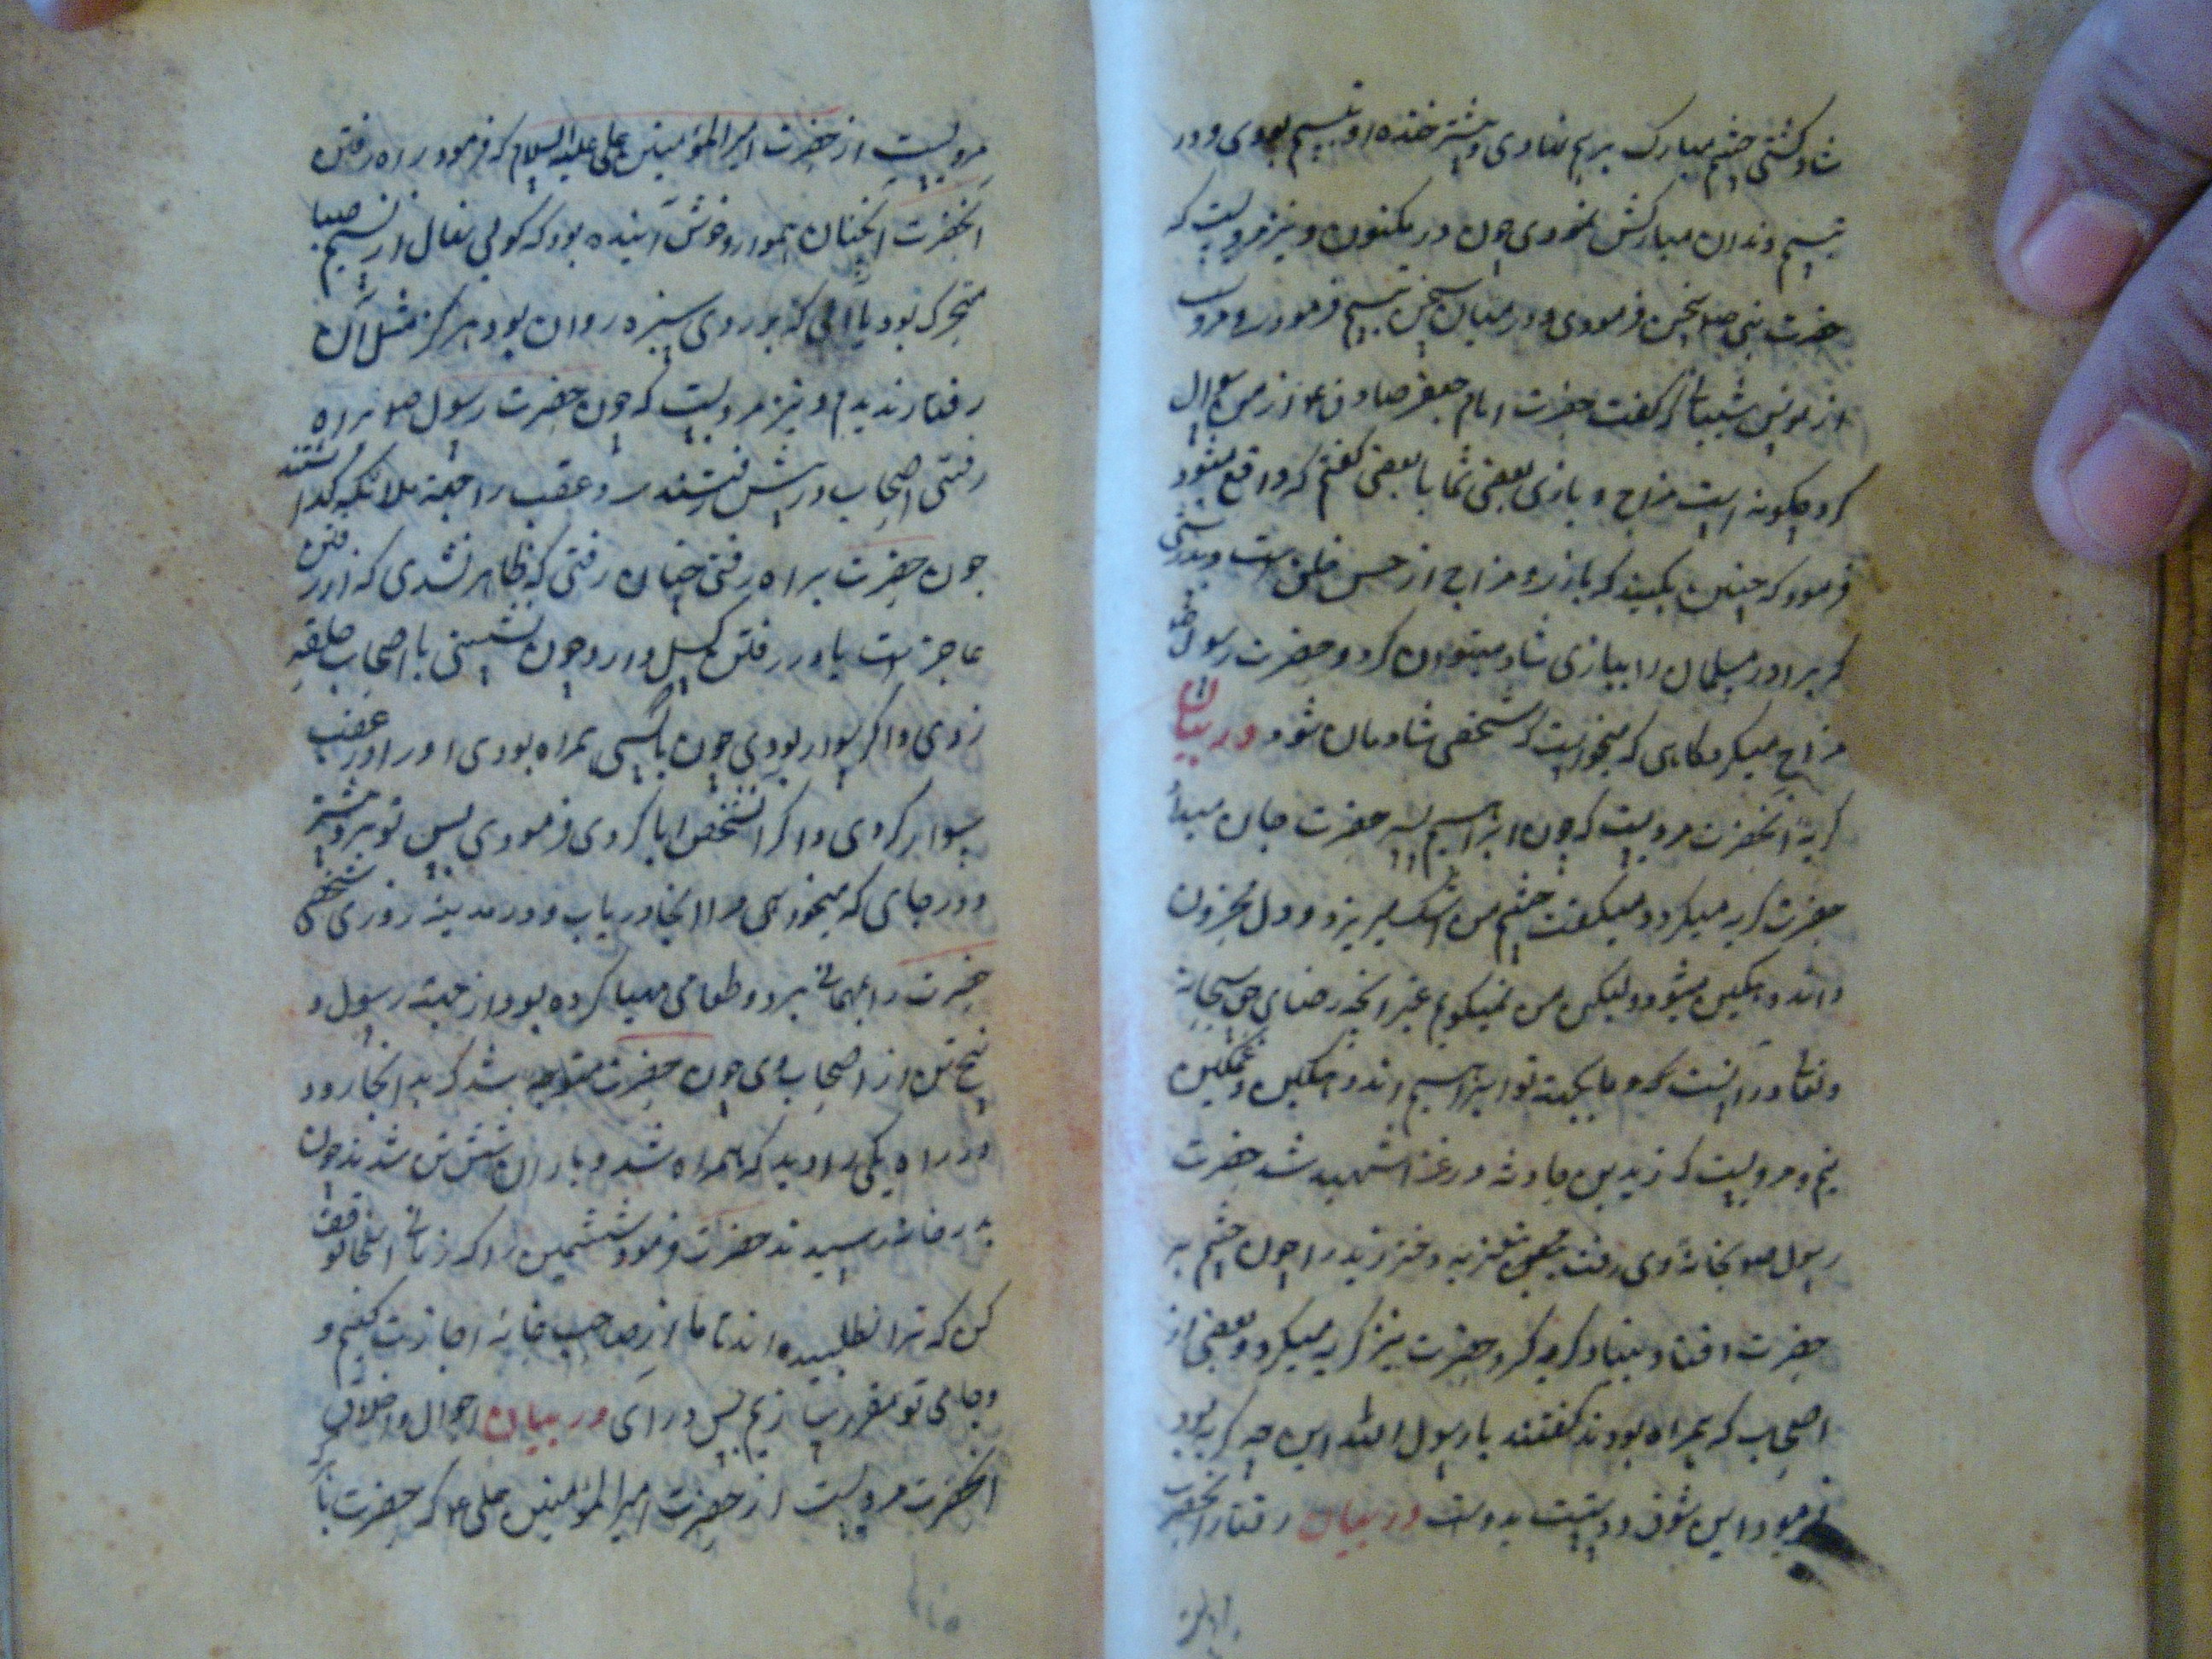 شاد کشتی چشم مبارک برهم نهادی و بیشتر خنده او تبسم بودی و در
تبسم دندان مبارکش نمودی چون در مکنون و نیز مرویست که
حضرت نبی صلعم سخن فرمودی و در میان سخن تبسم فرمودی و مرویست
از یونس شیبانی که گفت حضرت امام جعفر صادق ع از من سوال
کرد چگونه است مزاح و بازی بعضی شما با بعضی گفتم که واقع میشود
فرمود که چنین بکنید که بازی و مزاح از حسن خلق است و بدرستی
که برادر مسلمان را ببازی شاد میتوان کرد و حضرت رسول
مزاح میکرد کاهی که میخواست که شخصی شادمان شود در بیان
کریهٔ آنحضرت مرویست که چون ابراهیم پسر حضرت جان میداد
حضرت کریه میکرد و میکفت چشم من اشک میریزد و دل محزون
و اندوهکین میشود و لیکن من نمیکویم غیر آنچه رضای حق سبحانه
و تعالی در آنست که و ما بجهته تو ابراهیم اندوهکین و غمکین
ایم و مرویست که زید بن حارثه در غزا شهید شد حضرت
رسول صلعم بخانهٔ وی رفت بجهت تعزیه دختر زید را چون چشم بر
حضرت افتاد بنیاد کریه کرد حضرت نیز کریه میکرد و بعضی از
اصحاب که همراه بودند کفتند یا رسول الله این چه کریه بود
فرمود این شوق دوستیست بدوست در بیان رفتار آنحضرت
مرویست از حضرت امیر المؤمنین علی علیه السلام که فرمود راه رفتن
آنحضرت آنچنان هموار و خوش آینده بود که کویی نهال از نسیم صبا
متحرک بود یا آبی که بر روی سبزه روان بود هرکز مثل آن
رفتار ندیدم و نیز مرویست که چون حضرت رسول صلعم براه
رفتی اصحاب در پیش رفتندی و عقب را جهة ملائکه کذاشتند
چون حضرت براه رفتی چنان رفتی که ظاهر نشدی که از رفتن
عاجز است یا در رفتن کسل دارد و چون نشستی با اصحاب حلقه
زدی و اکر سوار بودی چون با کسی همراه بودی او را در عقب
سوار کردی و اکر آنشخص ابا کردی فرمودی پس تو برو پیشتر
و در جای که میخواهی مرا آنجا دریاب و در مدینه روزی شخصی
حضرت را بمهمانی برد و طعامی مهیا کرده بود از جهته رسول و
پنج تن از اصحاب وی چون حضرت متوجه شد که بدانجا رود
در راه یکی را دید که همراه شد و یاران شش تن شدند چون
بدر خانه رسیدند حضرت فرمود ششمین را که زمانی اینجا توقف
کن که ترا نطلبیده اند تا ما از صاحب خانه اجازت کنیم و
وجامی تو مقرر سازیم پس درآی در بیان احوال و اخلاق
آنحضرت مرویست از حضرت امیر المؤمنین علی ع که حضرت با